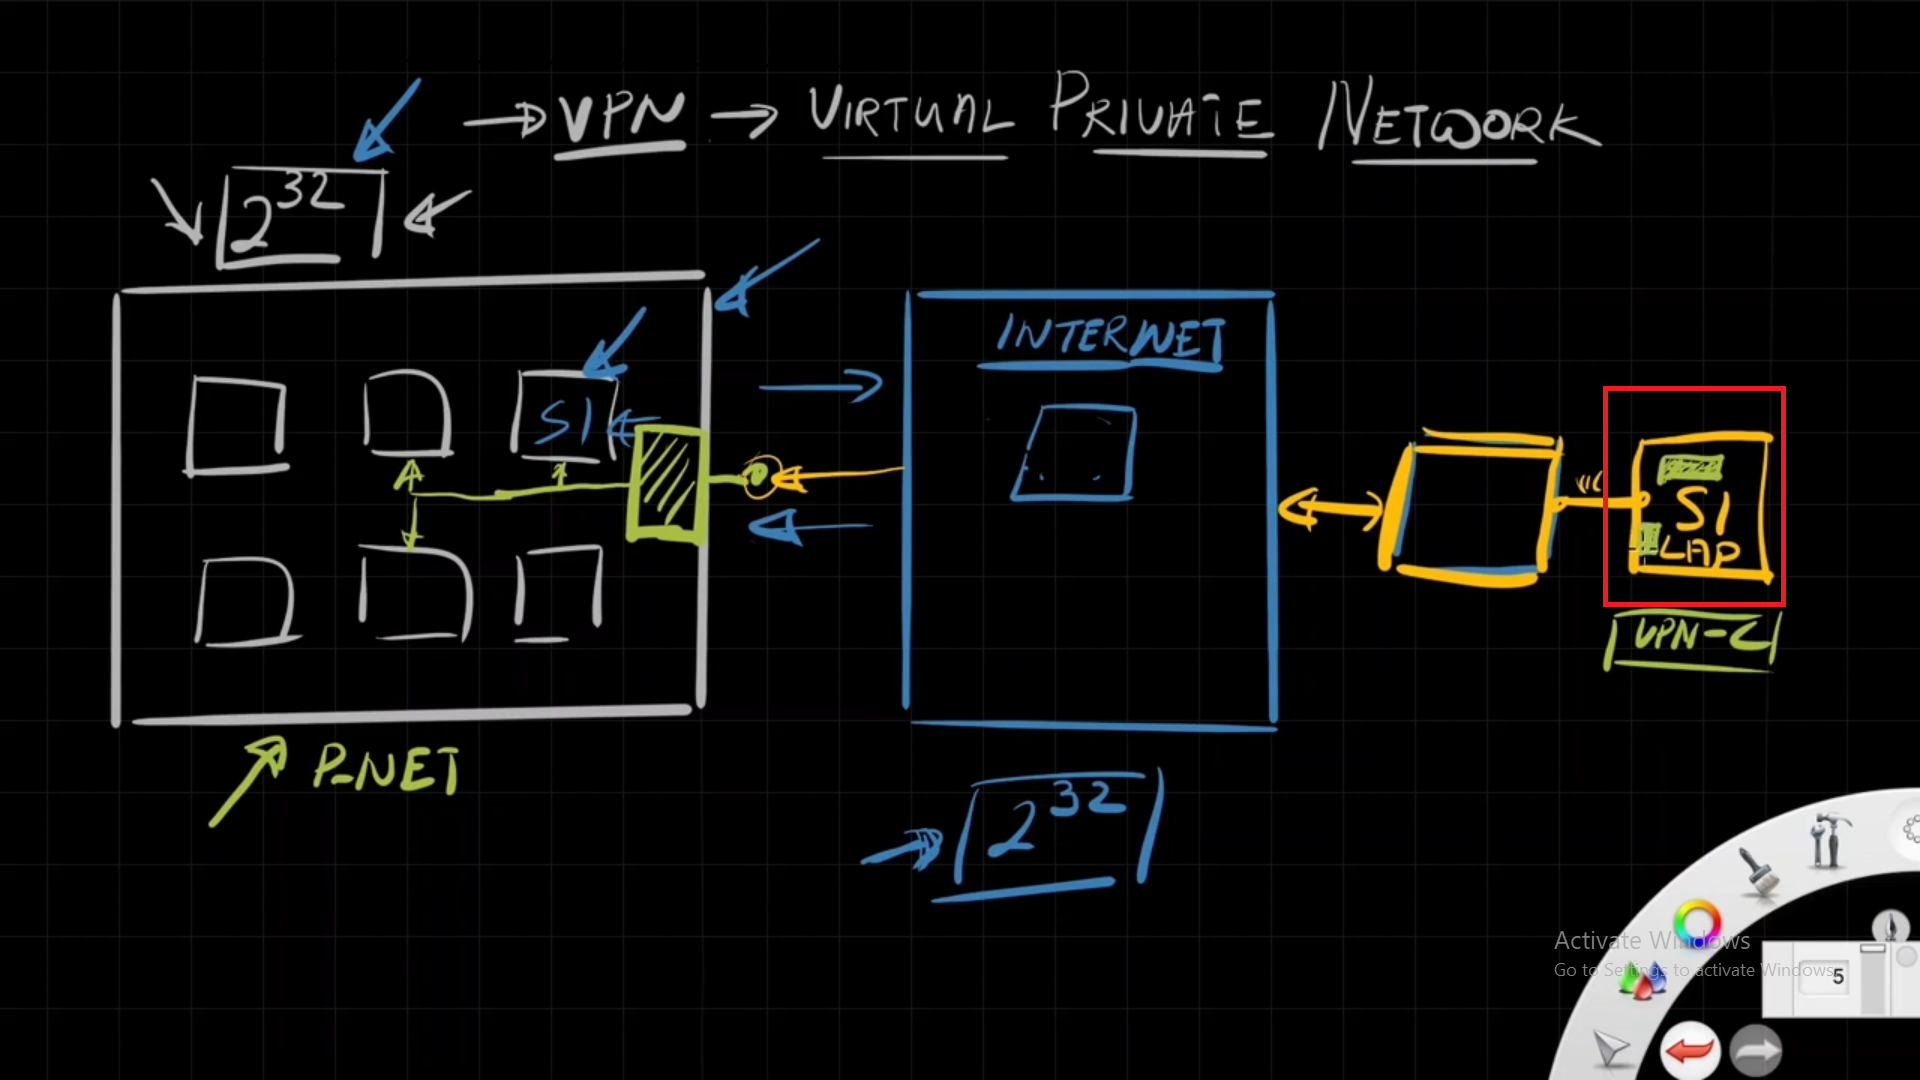 → VPN → VIRTUAL PRIVATE NETWORK
2^32
INTERNET
S1
S1
LAP
VPN-C
P-NET
2^32
Activate Windows
Go to Settings to activate Windows.
5